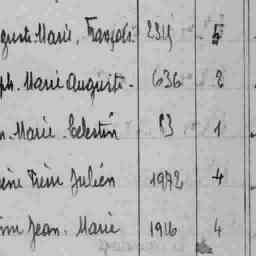 guste Marie, François. 2319 5
ph. Marie Auguste. 636 2
n. Marie. Celestin 83 1
Julien 1972 4
Jean. Marie 1916 4